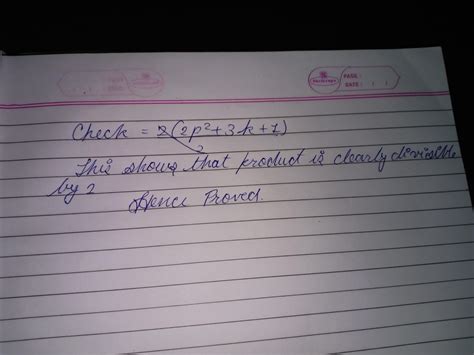 PAGE:
DATE:
Check = 2(2p²+3k+1)
2
This shows that product is clearly divisible
by 2
Hence Proved.